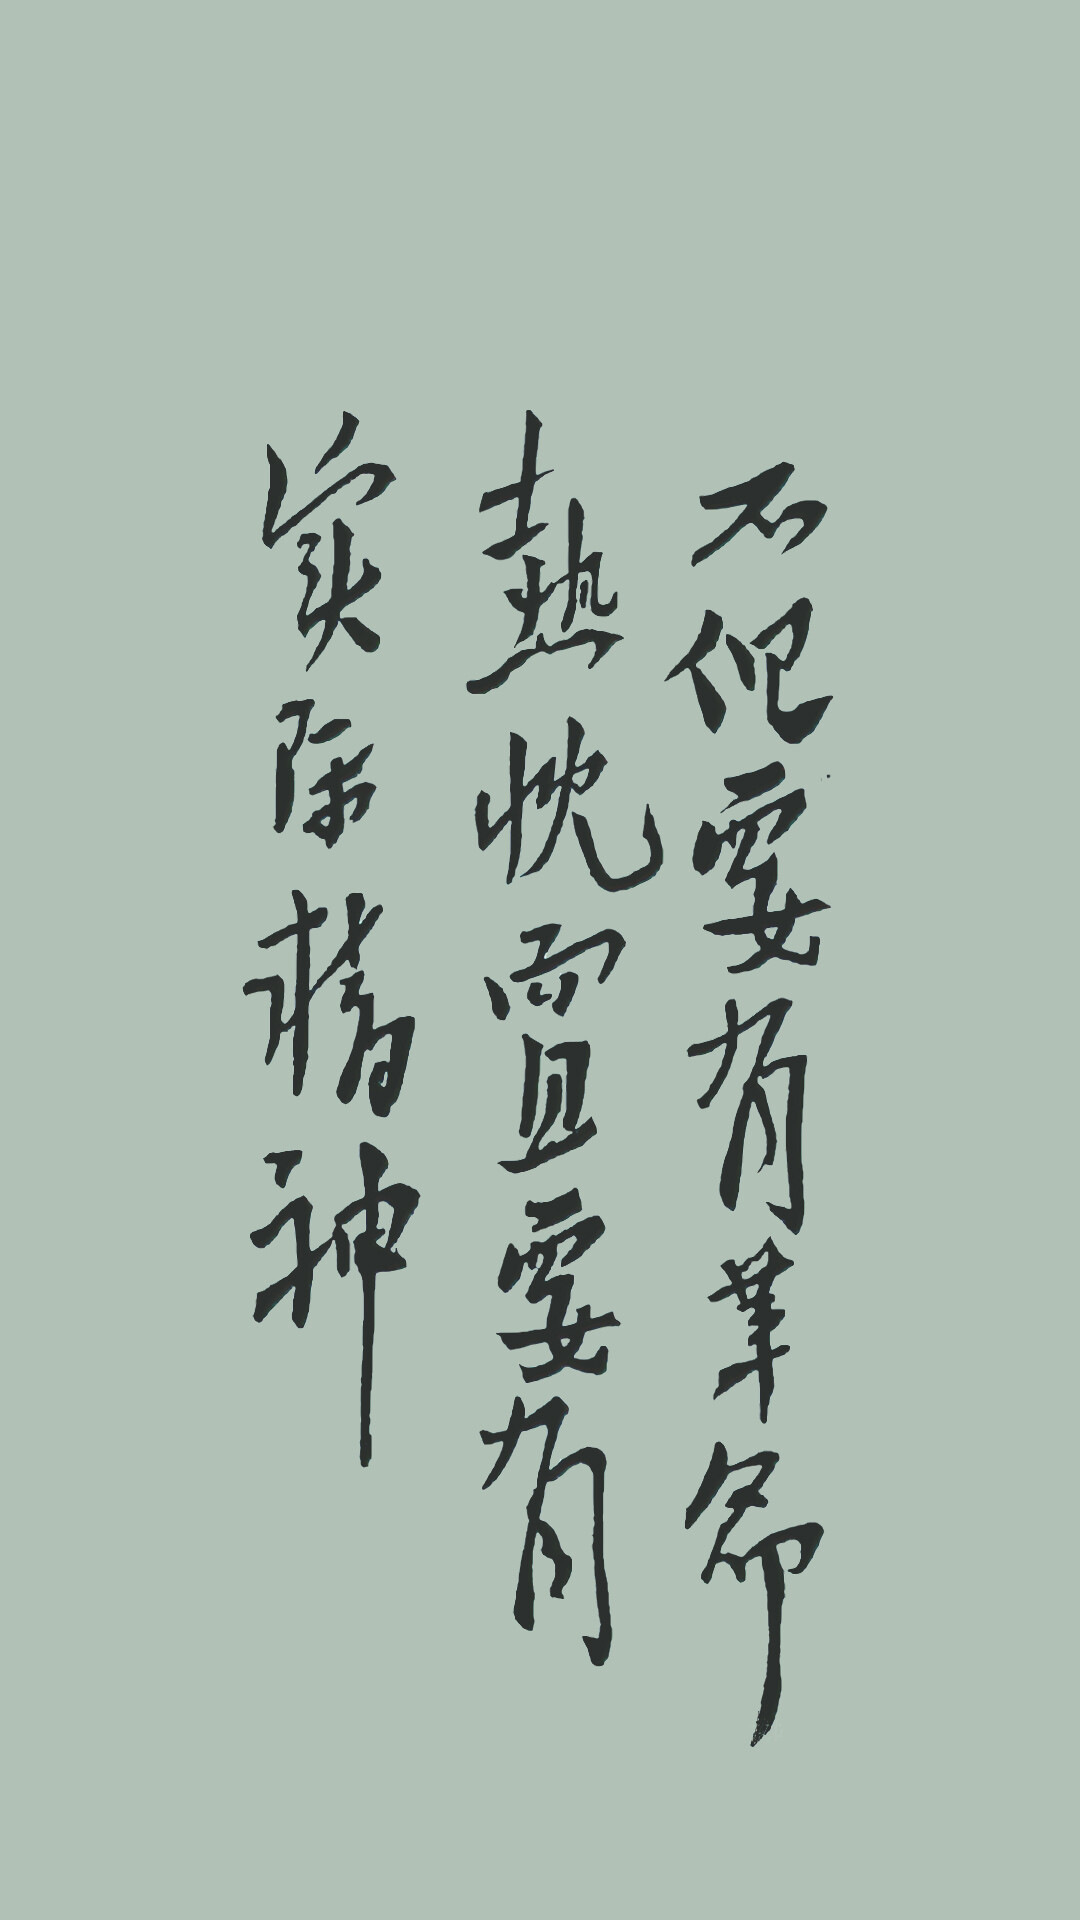 不但要有革命
热忱而且要有
实际精神